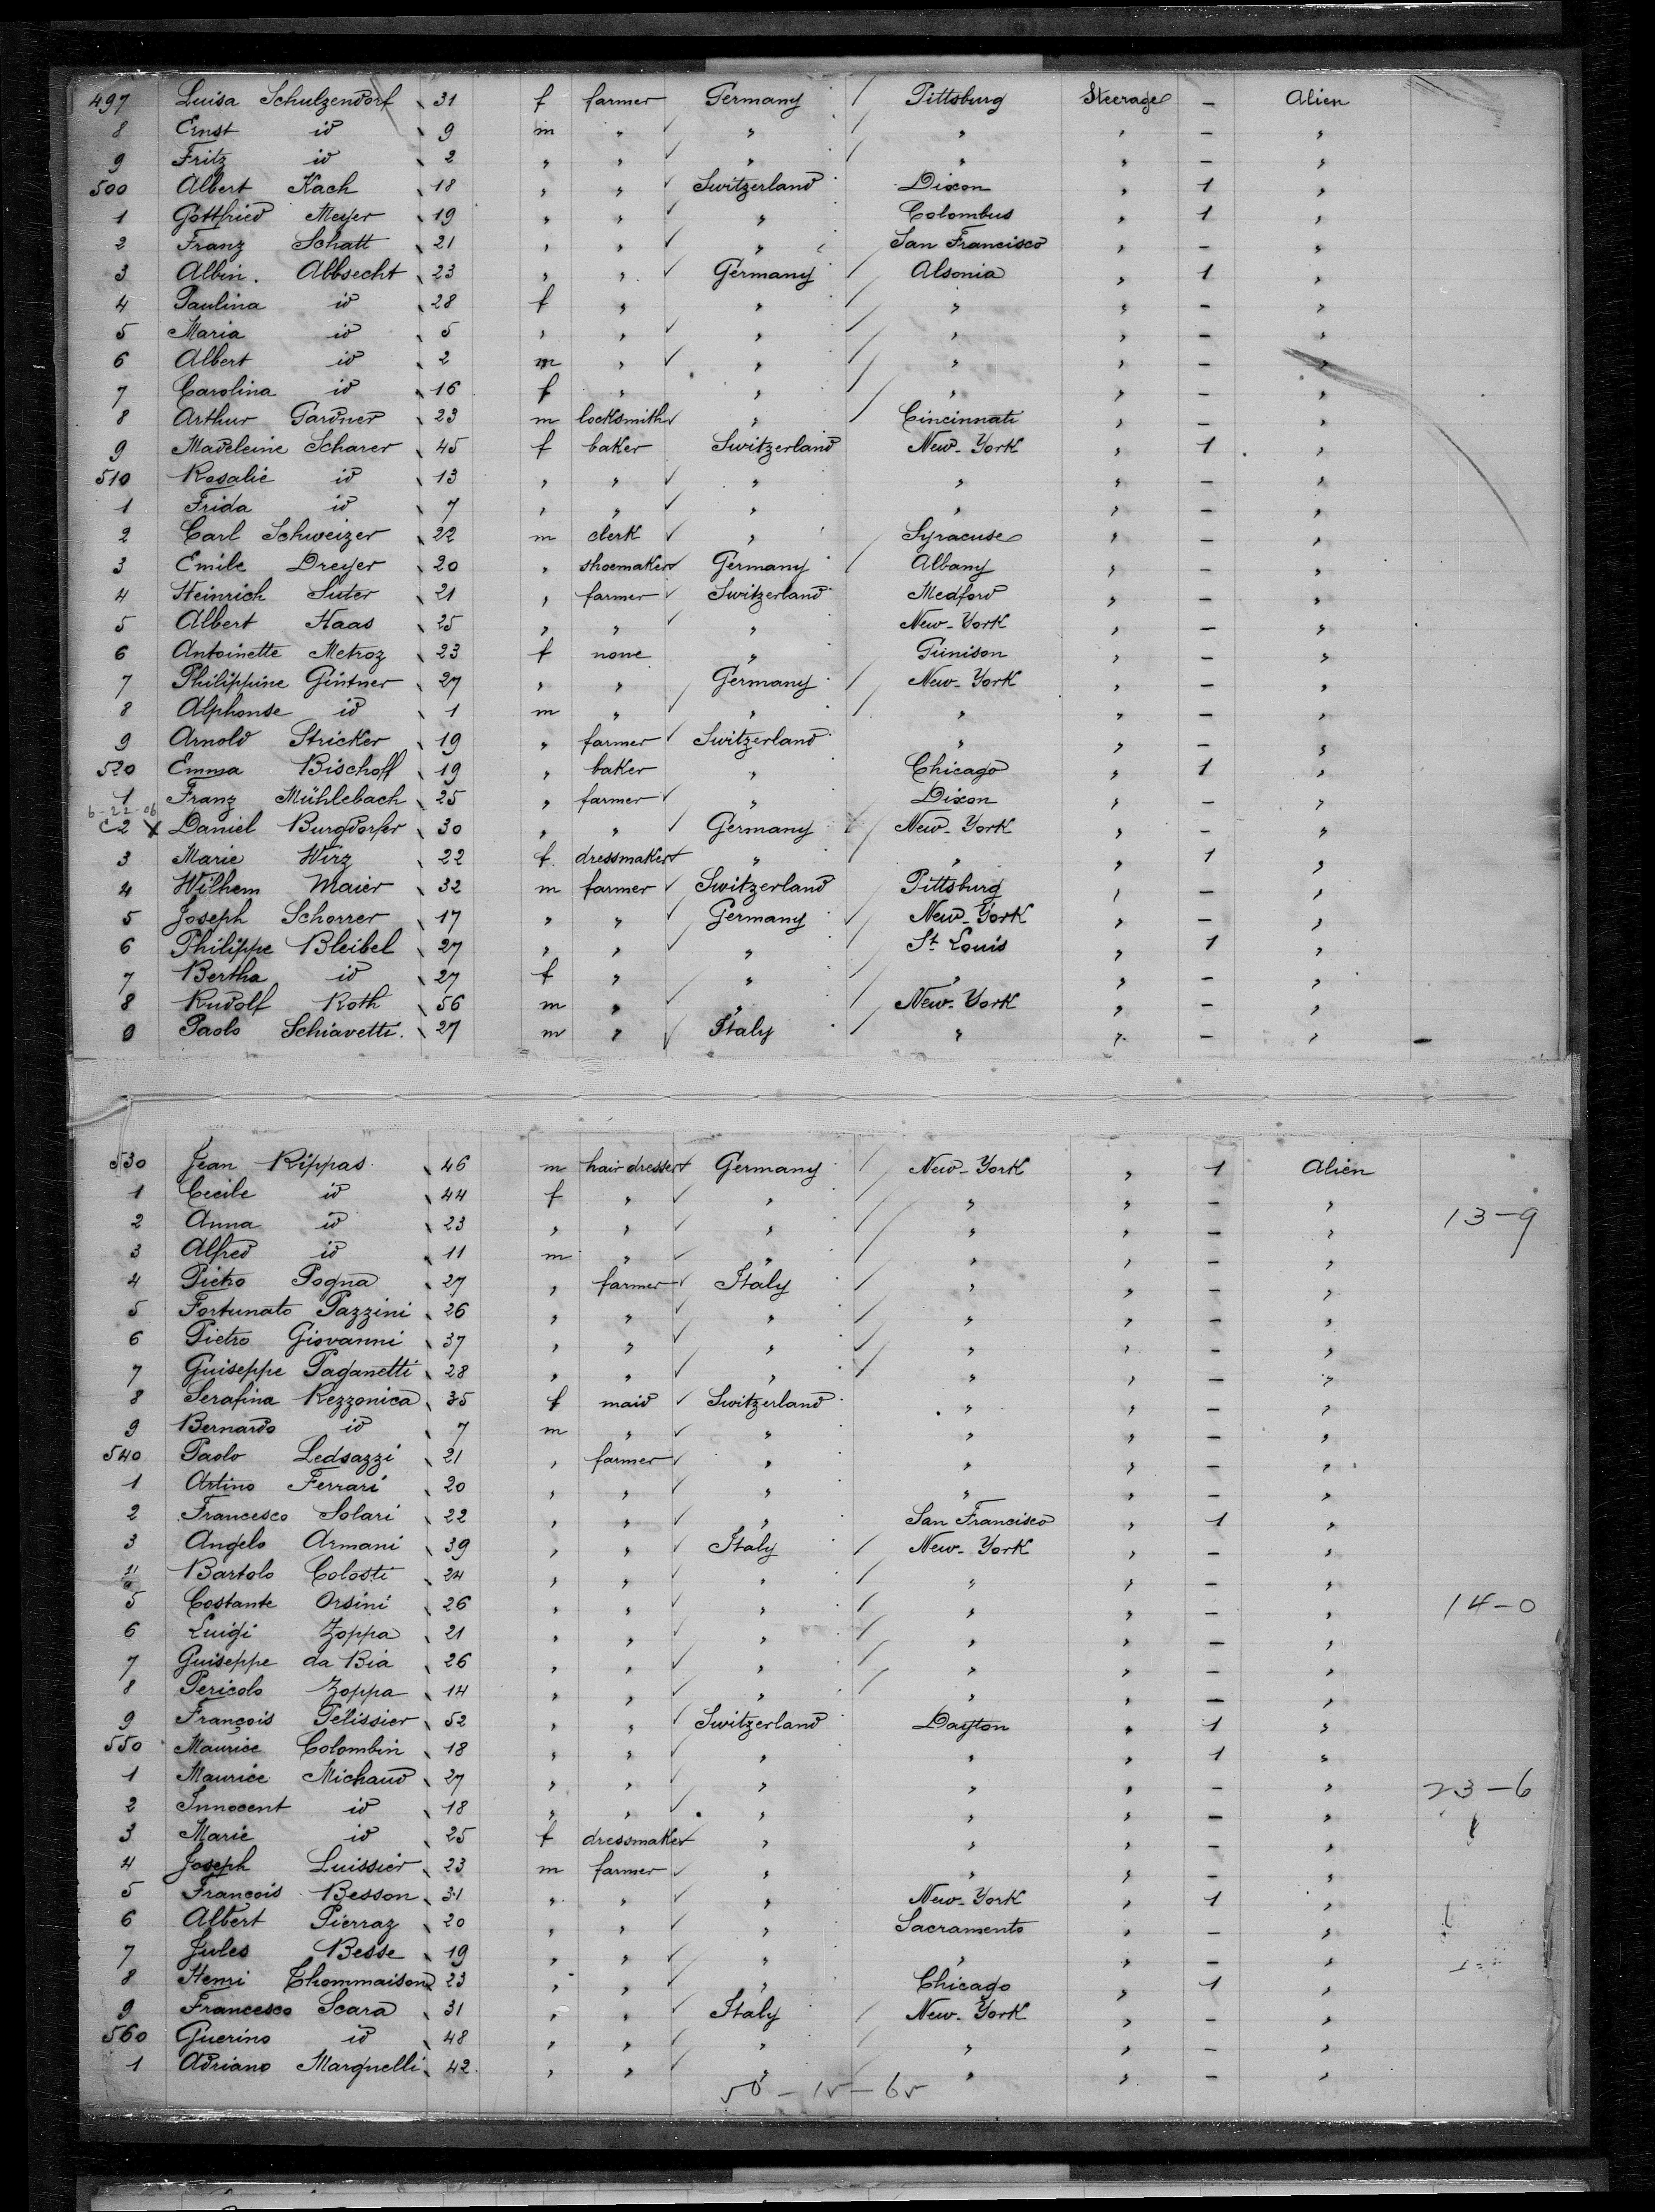 497 Luisa Schulzendorf 31 f farmer Germany Pittsburg Steerage - Alien
8 Ernst id 9 m " " " " - "
9 Fritz id 2 " " " " " - "
500 Albert Kach 18 " " Switzerland Dixon " 1 "
1 Gottfried Meyer 19 " " " Colombus " 1 "
2 Franz Schatt 21 " " " San Francisco " - "
3 Albin. Albsecht 23 " " Germany Alsonia " 1 "
4 Paulina id 28 f " " " " - "
5 Maria id 5 " " " " " - "
6 Albert id 2 m " " " " - "
7 Carolina id 16 f " " " " - "
8 Arthur Gardner 23 m locksmith " Cincinnati " - "
9 Madeleine Scharer 45 f baker Switzerland New-York " 1 "
510 Rosalie id 13 " " " " " - "
1 Frida id 7 " " " " " - "
2 Carl Schweizer 22 m clerk " Syracuse " - "
3 Emile Dreyer 20 " shoemaker Germany Albany " - "
4 Heinrich Suter 21 " farmer Switzerland Medford " - "
5 Albert Haas 25 " " " New-York " - "
6 Antoinette Metroz 23 f none " Gunison " - "
7 Philippine Gintner 27 " " Germany New-York " - "
8 Alphonse id 1 m " " " " - "
9 Arnold Stricker 19 " farmer Switzerland " " - "
520 Emma Bischoff 19 " baker " Chicago " 1 "
1 Franz Mühlebach 25 " farmer " Dixon " - "
6-22-06
2 x Daniel Burgdorfer 30 " " Germany New-York " - "
3 Marie Wirz 22 f. dressmaker " " " 1 "
4 Wilhem Maier 32 m farmer Switzerland Pittsburg " - "
5 Joseph Schorrer 17 " " Germany New-York " - "
6 Philippe Bleibel 27 " " " St. Louis " 1 "
7 Bertha id 27 f " " " " - "
8 Rudolf Roth 56 m " " New-York " - "
9 Paolo Schiavetti. 27 m " Italy " " - "
530 Jean Rippas. 46 m hairdresser Germany New-York " 1 Alien
1 Cecile id 44 f " " " " - "
2 Anna id 23 " " " " " - " 13-9
3 Alfred id 11 m " " " " - "
4 Pietro Pogna 27 " farmer Italy " " - "
5 Fortunato Pazzini 26 " " " " " - "
6 Pietro Giovanni 37 " " " " " - "
7 Guiseppe Paganetti 28 " " " " " - "
8 Serafina Rezzonica 35 f maid Switzerland " " - "
9 Bernardo id 7 m " " " " - "
540 Paolo Ledsazzi 21 " farmer " " " - "
1 Artino Ferrari 20 " " " " " - "
2 Francesco Solari 22 " " " San Francisco " 1 "
3 Angelo Armani 39 " " Italy New-York " - "
4 Bartolo Colosti 24 " " " " " - "
5 Costante Orsini 26 " " " " " - " 14-0
6 Luigi Zoppa 21 " " " " " - "
7 Guiseppe da Bia 26 " " " " " - "
8 Pericolo Zoppa 14 " " " " " - "
9 François Pélissier 52 " " Switzerland Dayton " 1 "
550 Maurice Colombin 18 " " " " " 1 "
1 Maurice Michaud 27 " " " " " - " 23-6
2 Innocent id 18 " " " " " - "
3 Marie id 25 f dressmaker " " " - "
4 Joseph Luissier 23 m farmer " " " - "
5 François Besson 31 " " " New-York " 1 "
6 Albert Pierraz 20 " " " Sacramento " - "
7 Jules Besse 19 " " " " " - "
8 Henri Thommaison 23 " " " Chicago " 1 "
9 Francesco Scara 31 " " Italy New-York " - "
560 Guerino id 48 " " " " " - "
1 Adriano Margnelli 42. " " " " " - "